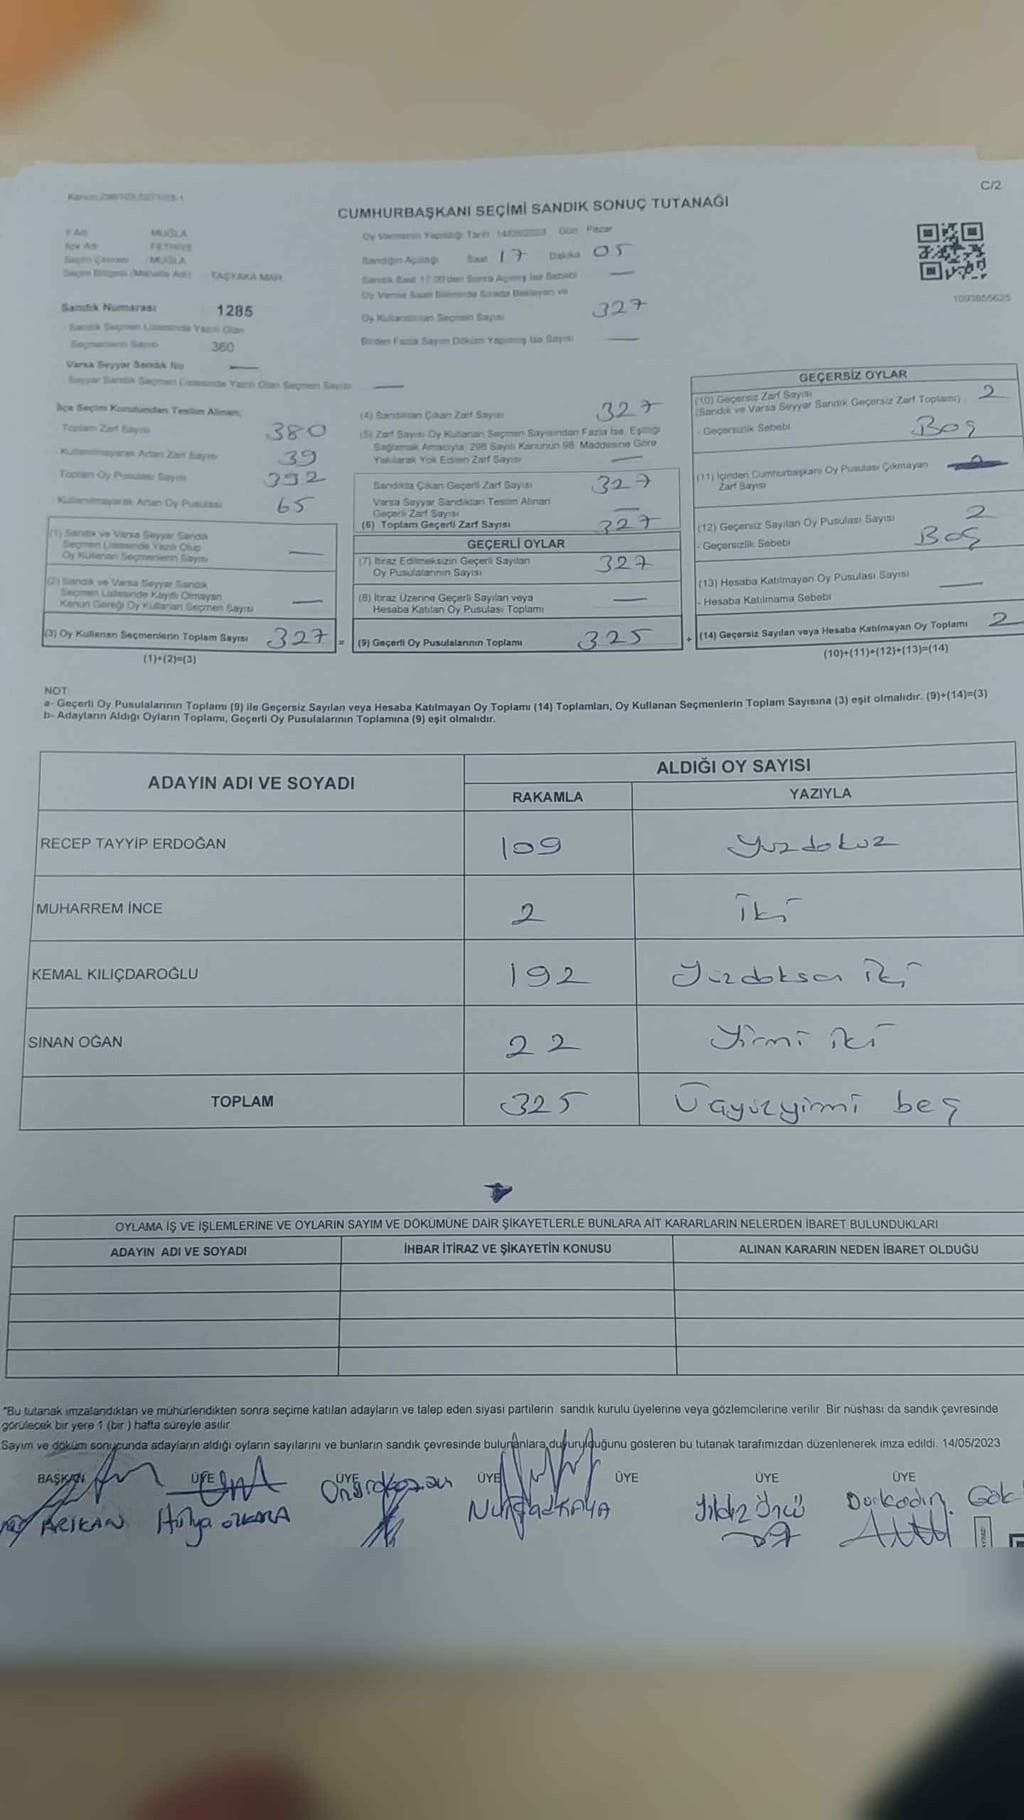 C/2
CUMHURBAŞKANI SEÇİMİ SANDIK SONUÇ TUTANAĞI
İl Adı MUĞLA
İlçe Adı FETHİYE
Seçim Çevresi MUĞLA
Seçim Bölgesi (Mahalle Adı) TAŞYAKA MAH.
Sandık Numarası 1285
Sandık Seçmen Listesinde Yazılı Olan
Seçmenlerin Sayısı 360
Varsa Seyyar Sandık No —
Seyyar Sandık Seçmen Listesinde Yazılı Olan Seçmen Sayısı —
Oy Vermenin Yapıldığı Tarih 14/05/2023 Gün Pazar
Sandığın Açıldığı Saat 17 Dakika 05
Sandık Saat 17:00'den Sonra Açılmış İse Sebebi —
Oy Verme Saati Bitiminde Sırada Bekleyen ve
Oy Kullandırılan Seçmen Sayısı 327
Birden Fazla Sayım Döküm Yapılmış İse Sayısı —
1093855625
İlçe Seçim Kurulundan Teslim Alınan;
Toplam Zarf Sayısı 380
Kullanılmayarak Artan Zarf Sayısı 39
Toplam Oy Pusulası Sayısı 392
Kullanılmayarak Artan Oy Pusulası 65
(1) Sandık ve Varsa Seyyar Sandık
Seçmen Listesinde Yazılı Olup
Oy Kullanan Seçmenlerin Sayısı —
(2) Sandık ve Varsa Seyyar Sandık
Seçmen Listesinde Kayıtlı Olmayan
Kanun Gereği Oy Kullanan Seçmen Sayısı —
(3) Oy Kullanan Seçmenlerin Toplam Sayısı 327 =
(1)+(2)=(3)
(4) Sandıktan Çıkan Zarf Sayısı 327
(5) Zarf Sayısı Oy Kullanan Seçmen Sayısından Fazla İse, Eşitliği
Sağlamak Amacıyla, 298 Sayılı Kanunun 98. Maddesine Göre
Yakılarak Yok Edilen Zarf Sayısı —
Sandıkta Çıkan Geçerli Zarf Sayısı 327
Varsa Seyyar Sandıktan Teslim Alınan
Geçerli Zarf Sayısı —
(6) Toplam Geçerli Zarf Sayısı 327
GEÇERLİ OYLAR
(7) İtiraz Edilmeksizin Geçerli Sayılan
Oy Pusulalarının Sayısı 327
(8) İtiraz Üzerine Geçerli Sayılan veya
Hesaba Katılan Oy Pusulası Toplamı —
(9) Geçerli Oy Pusulalarının Toplamı 325 +
GEÇERSİZ OYLAR
(10) Geçersiz Zarf Sayısı
(Sandık ve Varsa Seyyar Sandık Geçersiz Zarf Toplamı) 2
- Geçersizlik Sebebi Boş
(11) İçinden Cumhurbaşkanı Oy Pusulası Çıkmayan
Zarf Sayısı
(12) Geçersiz Sayılan Oy Pusulası Sayısı 2
- Geçersizlik Sebebi Boş
(13) Hesaba Katılmayan Oy Pusulası Sayısı —
- Hesaba Katılmama Sebebi
(14) Geçersiz Sayılan veya Hesaba Katılmayan Oy Toplamı 2
(10)+(11)+(12)+(13)=(14)
NOT:
a- Geçerli Oy Pusulalarının Toplamı (9) ile Geçersiz Sayılan veya Hesaba Katılmayan Oy Toplamı (14) Toplamları, Oy Kullanan Seçmenlerin Toplam Sayısına (3) eşit olmalıdır. (9)+(14)=(3)
b- Adayların Aldığı Oyların Toplamı, Geçerli Oy Pusulalarının Toplamına (9) eşit olmalıdır.
ADAYIN ADI VE SOYADI
ALDIĞI OY SAYISI
RAKAMLA YAZIYLA
RECEP TAYYİP ERDOĞAN 109 Yüzdokuz
MUHARREM İNCE 2 İki
KEMAL KILIÇDAROĞLU 192 Yüzdoksan iki
SİNAN OĞAN 22 Yirmi iki
TOPLAM 325 Üçyüzyirmi beş
OYLAMA İŞ VE İŞLEMLERİNE VE OYLARIN SAYIM VE DÖKÜMÜNE DAİR ŞİKAYETLERLE BUNLARA AİT KARARLARIN NELERDEN İBARET BULUNDUKLARI
ADAYIN ADI VE SOYADI İHBAR İTİRAZ VE ŞİKAYETİN KONUSU ALINAN KARARIN NEDEN İBARET OLDUĞU
"Bu tutanak imzalandıktan ve mühürlendikten sonra seçime katılan adayların ve talep eden siyasi partilerin sandık kurulu üyelerine veya gözlemcilerine verilir. Bir nüshası da sandık çevresinde
görülecek bir yere 1 (bir) hafta süreyle asılır.
Sayım ve döküm sonucunda adayların aldığı oyların sayılarını ve bunların sandık çevresinde bulunanlara duyurulduğunu gösteren bu tutanak tarafımızdan düzenlenerek imza edildi. 14/05/2023
BAŞKAN ÜYE ÜYE ÜYE ÜYE ÜYE ÜYE
ARIKAN Hülya Yıldız Öncü Gök